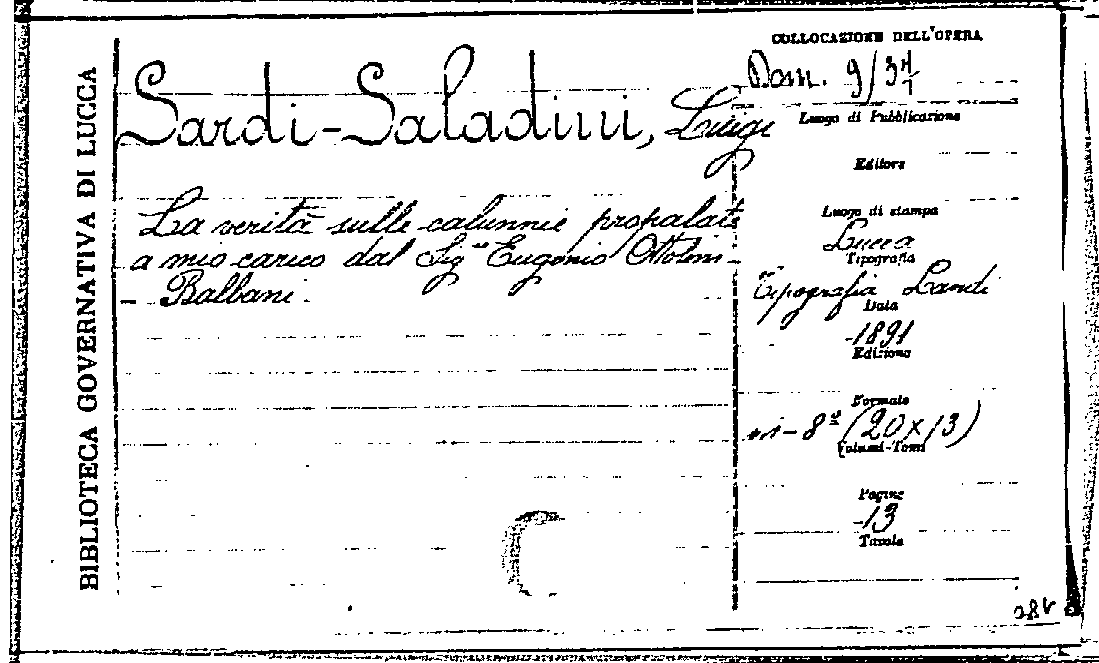 BIBLIOTECA GOVERNATIVA DI LUCCA
Sardi-Saladini, Luigi
La verità sulle calunnie propalate
a mio carico dal Sig Eugenio Ottolini-
- Balbani.
COLLOCAZIONE DELL'OPERA
Dom. 9/37
Luogo di Pubblicazione
Editore
Luogo di stampa
Lucca
Tipografia
Tipografia Landi
Data
-1891
Edizione
Formato
in-8º (20x13)
Volumi-Tomi
Pagine
-13
Tavole